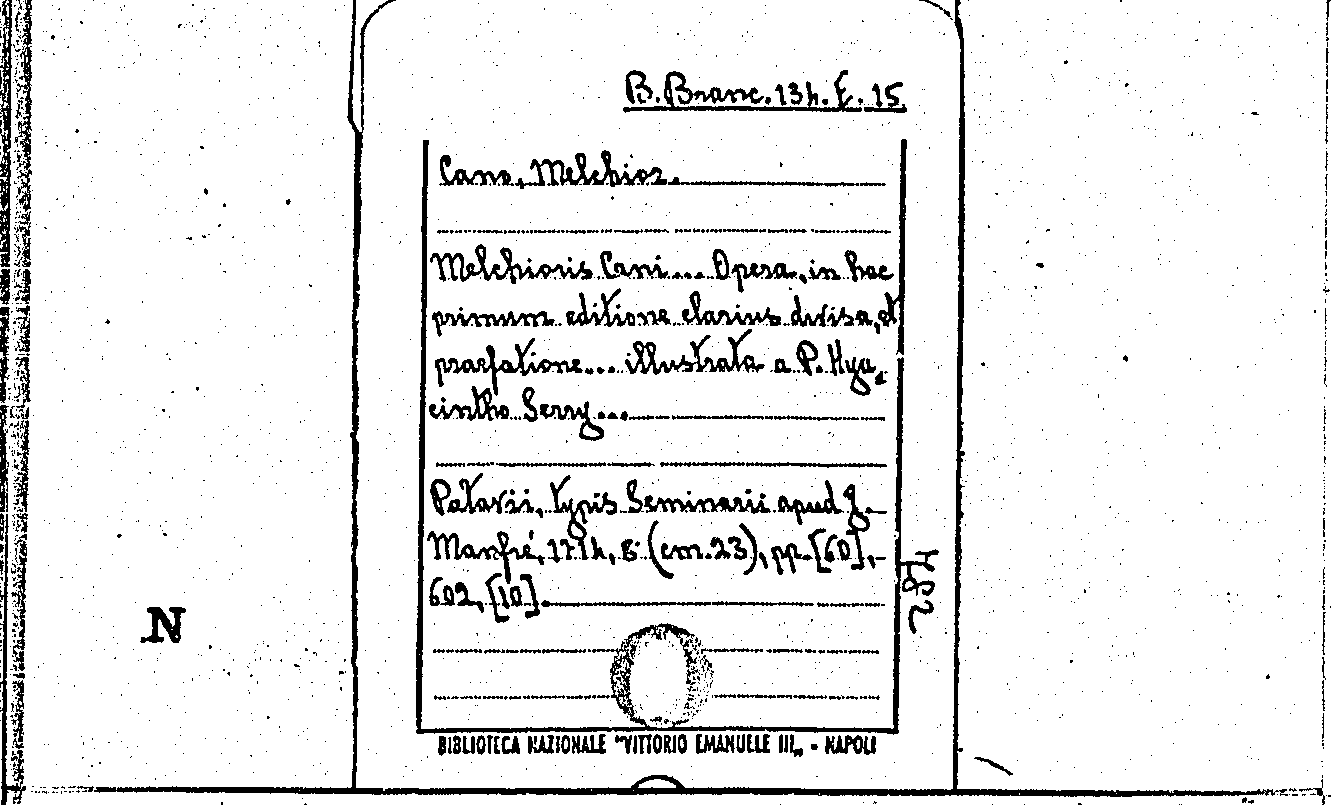 B. Branc. 13h. E. 15
Cano, Melchior.
Melchioris Cani... Opera, in hac
primum editione clarius divisa, et
praefatione... illustrata a P. Hya,
cintho Serry...
Patavii, typis Seminarii apud J.
Manfré, 17 h, 8° (cm. 23), pp. [60],-
602, [10].
482
N
BIBLIOTECA NAZIONALE "VITTORIO EMANUELE III„ - NAPOLI